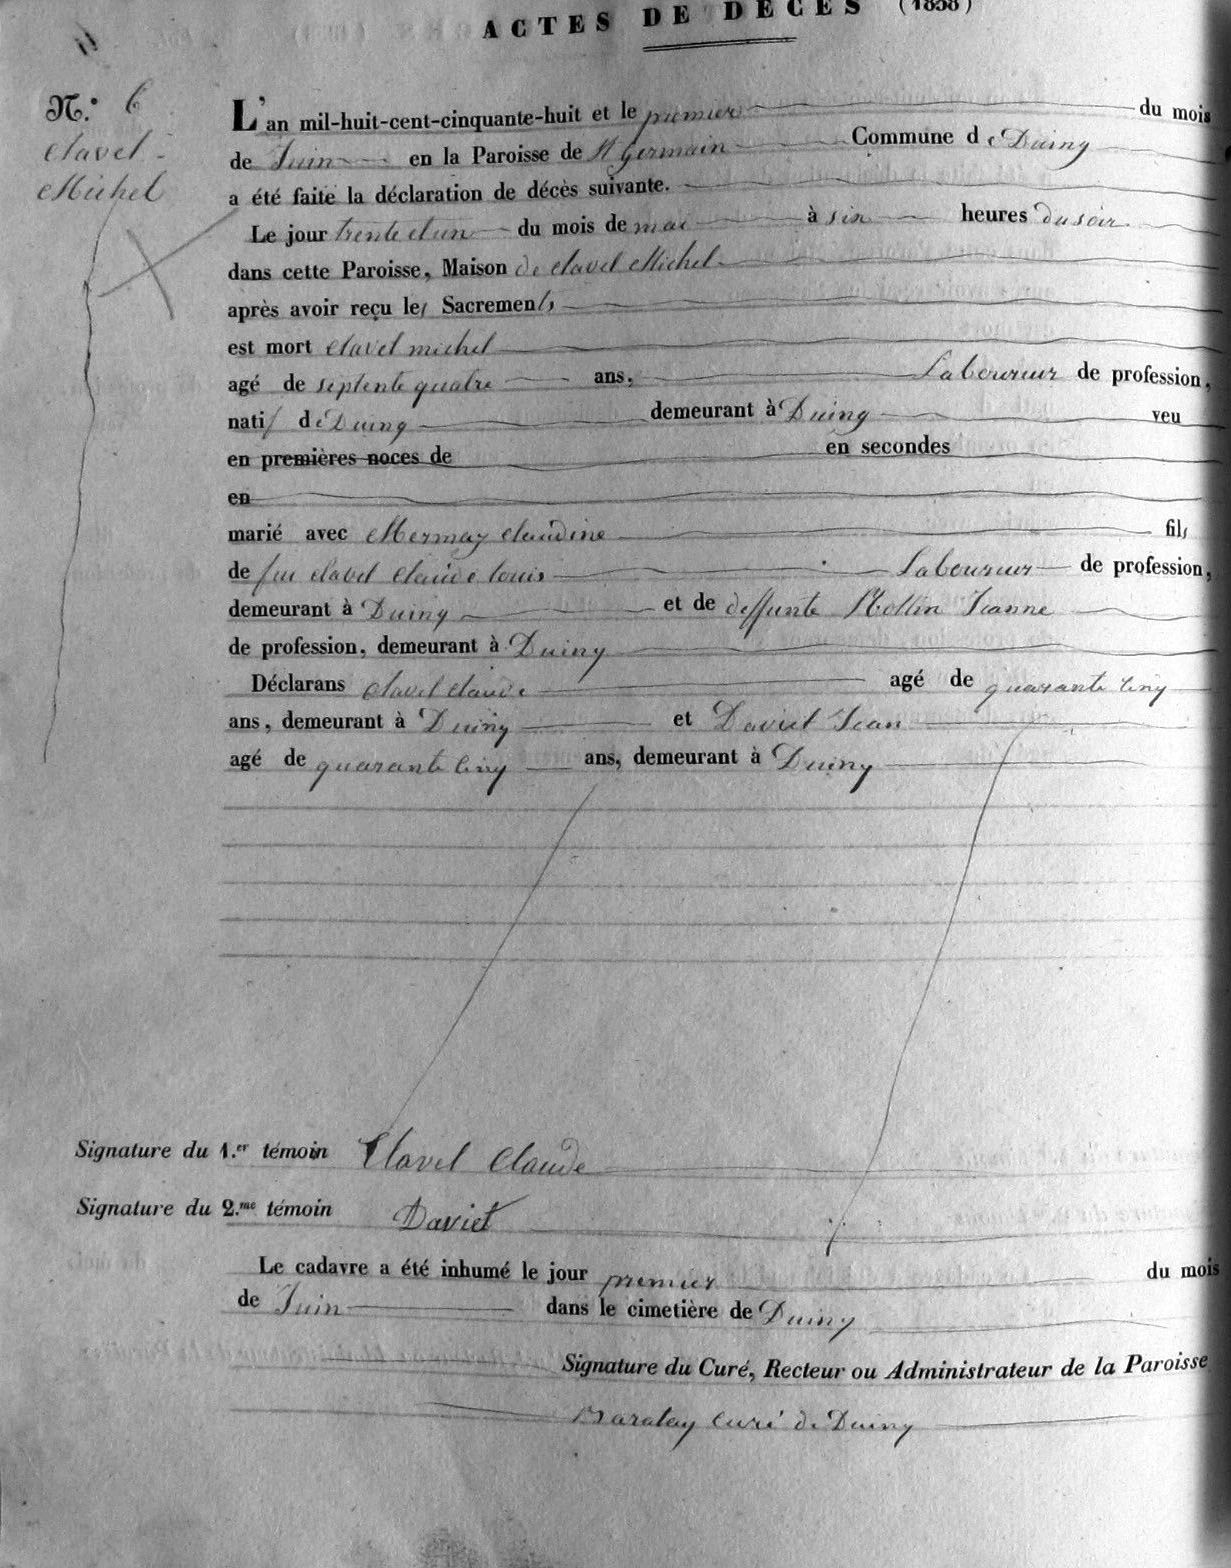 ACTES DE DÉCÈS (1858)
N.° 6
Clavel
Michel
L'an mil-huit-cent-cinquante-huit et le premier du mois
de Juin en la Paroisse de St Germain Commune de Duing
a été faite la déclaration de décès suivante.
Le jour trente et un du mois de mai à six heures du soir
dans cette Paroisse, Maison de Clavel Michel
après avoir reçu les Sacremens,
est mort Clavel michel
agé de septente quatre ans, Laboureur de profession,
natif de Duing demeurant à Duing veu
en premières noces de en secondes
en
marié avec Mermaz Claudine fils
de feu Clavel Claude Louis Laboureur de profession,
demeurant à Duing et de deffunte Jeanne
de profession, demeurant à Duing
Déclarans Clavel Claude agé de quarante cinq
ans, demeurant à Duing et Daviet Jean
agé de quarante cinq ans, demeurant à Duing
Signature du 1.er témoin Clavel Claude
Signature du 2.me témoin Daviet
Le cadavre a été inhumé le jour premier du mois
de Juin dans le cimetière de Duing
Signature du Curé, Recteur ou Administrateur de la Paroisse
Curé de Duing